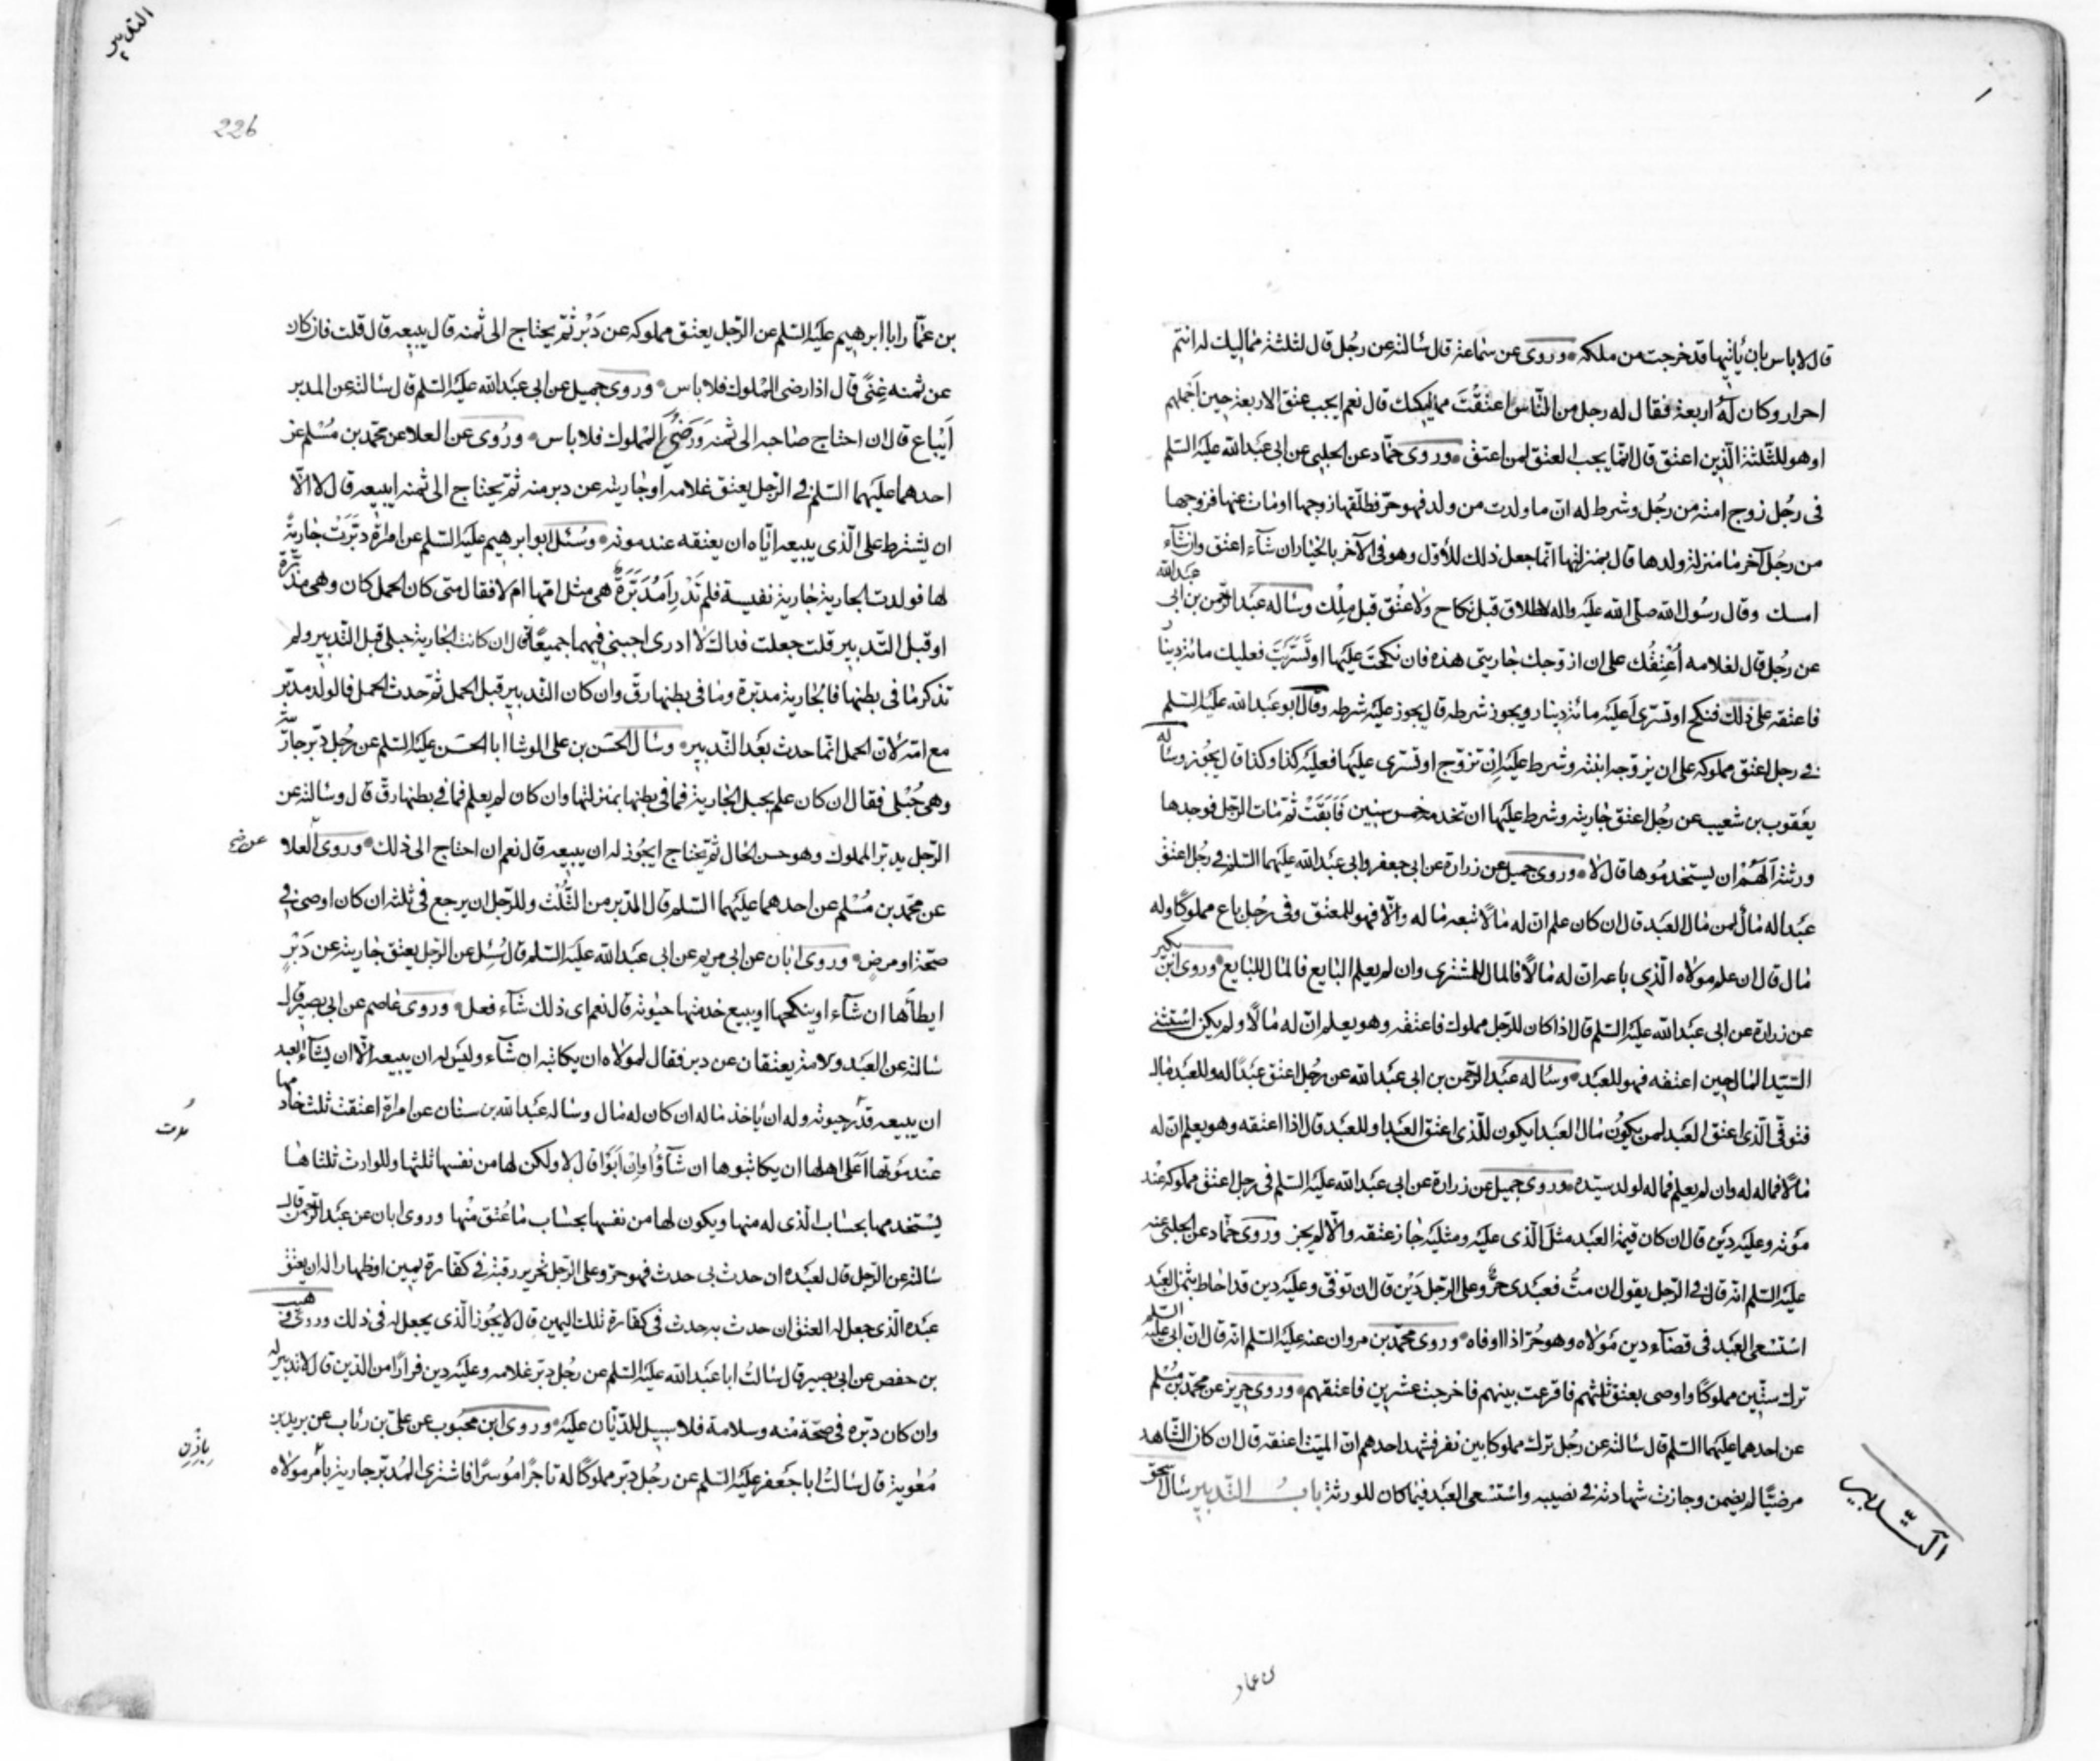 قال لا باس بان ياتيها قد خرجت من ملكه وروى عن سماعة قال سالته عن رجل قال لثلثة مماليك له انتم
احرار وكان له اربعة فقال له رجل من الناس اعتقت مماليكك قال نعم ايجب عتق الاربعة حين اجملهم
او هو للثلثة الذين اعتق قال انما يجب العتق لمن اعتق وروى حماد عن الحلبي عن ابي عبد الله عليه السلم
فى رجل زوج امته من رجل وشرط له ان ما ولدت من ولد فهو حر فطلقها زوجها او مات عنها فزوجها
من رجل آخر ما منزلة ولدها قال بمنزلتها انما جعل ذلك للاول وهو فى الآخر بالخيار ان شآء اعتق وان شآء
امسك وقال رسول الله صلى الله عليه واله لا طلاق قبل نكاح ولا عتق قبل ملك وساله عبد الرحمن بن ابي عبد الله
عن رجل قال لغلامه اعتقك على ان ازوجك جاريتى هذه فان نكحت عليها او تسريت فعليك مائة دينار
فاعتقه على ذلك فنكح او تسرى أعليه مائة دينار ويجوز شرطه قال يجوز عليه شرطه وقال ابو عبد الله عليه السلم
فى رجل اعتق مملوكه على ان يزوجه ابنته وشرط عليه ان تزوج او تسرى عليها فعليه كذا وكذا قال يجوز وساله
يعقوب بن شعيب عن رجل اعتق جاريته وشرط عليها ان تخدمه خمس سنين فابقت ثم مات الرجل فوجدها
ورثته ألهم ان يستخدموها قال لا وروى جميل عن زرارة عن ابي جعفر وابي عبد الله عليهما السلم فى رجل اعتق
عبدا له مال لمن مال العبد قال ان كان علم ان له مالا تبعه ماله والا فهو للمعتق وفى رجل باع مملوكا وله
مال قال ان علم مولاه الذي باعه ان له مالا فالمال للمشترى وان لم يعلم البايع فالمال للبايع وروى ابن بكير
عن زرارة عن ابي عبد الله عليه السلم قال اذا كان للرجل مملوك فاعتقه وهو يعلم ان له مالا ولم يكن استثنى
السيد المال حين اعتقه فهو للعبد وساله عبد الرحمن بن ابي عبد الله عن رجل اعتق عبدا له وللعبد مال
فتوفى الذى اعتق العبد لمن يكون مال العبد ايكون للذى اعتق العبد او للعبد قال اذا اعتقه وهو يعلم ان له
مالا فماله له وان لم يعلم فماله لولد سيده وروى جميل عن زرارة عن ابي عبد الله عليه السلم فى رجل اعتق مملوكه عند
موته وعليه دين قال ان كان قيمة العبد مثل الذى عليه ومثليه جاز عتقه والا لم يجز وروى حماد عن الحلبي عنه
عليه السلم انه قال فى الرجل يقول ان مت فعبدى حر وعلى الرجل دين قال ان توفى وعليه دين قد احاط بثمن العبد
استسعى العبد فى قضآء دين مولاه وهو حر اذا اوفاه وروى محمد بن مروان عنه عليه السلم انه قال ان ابي عليه السلم
ترك ستين مملوكا واوصى بعتق ثلثهم فاقرعت بينهم فاخرجت عشرين فاعتقهم وروى حريز عن محمد بن مسلم
عن احدهما عليهما السلم قال سالته عن رجل ترك مملوكا بين نفر فشهد احدهم ان الميت اعتقه قال ان كان الشاهد
مرضيا لم يضمن وجازت شهادته فى نصيبه واستسعى العبد فيما كان للورثة باب التدبير سال اسحق
التدبير
بن عمار
التدبير
226
بن عمار ابا ابرهيم عليه السلم عن الرجل يعتق مملوكه عن دبر ثم يحتاج الى ثمنه قال يبيعه قال قلت فان كان
عن ثمنه غنى قال اذا رضى المملوك فلا باس وروى جميل عن ابي عبد الله عليه السلم قال سالته عن المدبر
أيباع قال ان احتاج صاحبه الى ثمنه ورضى المملوك فلا باس وروى عن العلا عن محمد بن مسلم عن
احدهما عليهما السلم فى الرجل يعتق غلامه او جاريته عن دبر منه ثم يحتاج الى ثمنه ايبيعه قال لا الا
ان يشترط على الذى يبيعه اياه ان يعتقه عند موته وسئل ابو ابرهيم عليه السلم عن امراة دبرت جارية
لها فولدت الجارية جارية نفيسة فلم تدر أمدبرة هى مثل امها ام لا فقال متى كان الحمل كان وهى مدبرة
او قبل التدبير قلت جعلت فداك لا ادرى اجبنى فيهما جميعا قال ان كانت الجارية حبلى قبل التدبير ولم
تذكر ما فى بطنها فالجارية مدبرة وما فى بطنها رق وان كان التدبير قبل الحمل ثم حدث الحمل فالولد مدبر
مع امه لان الحمل انما حدث بعد التدبير وسال الحسن بن على الوشا ابا الحسن عليه السلم عن رجل دبر جارية
وهى حبلى فقال ان كان علم بحبل الجارية فما فى بطنها بمنزلتها وان كان لم يعلم فما فى بطنها رق قال وسالته عن
الرجل يدبر المملوك وهو حسن الحال ثم يحتاج ايجوز له ان يبيعه قال نعم ان احتاج الى ذلك وروى العلا
عن محمد بن مسلم عن احدهما عليهما السلم قال المدبر من الثلث وللرجل ان يرجع فى ثلثه ان كان اوصى فى
صحة او مرض وروى ابان عن ابي مريم عن ابي عبد الله عليه السلم قال سئل عن الرجل يعتق جاريته عن دبر
ايطأها ان شآء او ينكحها او يبيع خدمتها حيوته قال نعم اى ذلك شآء فعل وروى عاصم عن ابي بصير قال
سالته عن العبد والامة يعتقان عن دبر فقال لمولاه ان يكاتبه ان شآء وليس له ان يبيعه الا ان يشآء العبد
ان يبيعه قدر حيوته وله ان ياخذ ماله ان كان له مال وساله عبد الله بن سنان عن امراة اعتقت ثلث خادمها
عند موتها أعلى اهلها ان يكاتبوها ان شآؤا وان ابوا قال لا ولكن لها من نفسها ثلثها وللوارث ثلثاها
يستخدمها بحساب الذى له منها ويكون لها من نفسها بحساب ما عتق منها وروى ابان عن عبد الرحمن قال
سالته عن الرجل قال لعبده ان حدث بى حدث فهو حر وعلى الرجل تحرير رقبة فى كفارة يمين او ظهار اله ان يعتق
عبده الذى جعل له العتق ان حدث به حدث فى كفارة تلك اليمين قال لا يجوز الذى يجعل له فى ذلك وروى وهيب
بن حفص عن ابي بصير قال سالت ابا عبد الله عليه السلم عن رجل دبر غلامه وعليه دين فرارا من الدين قال لا تدبير له
وان كان دبره فى صحة منه وسلامة فلا سبيل للديان عليه وروى ابن محبوب عن على بن رئاب عن بريد بن
معوية قال سالت ابا جعفر عليه السلم عن رجل دبر مملوكا له تاجرا موسرا فاشترى المدبر جارية بامر مولاه